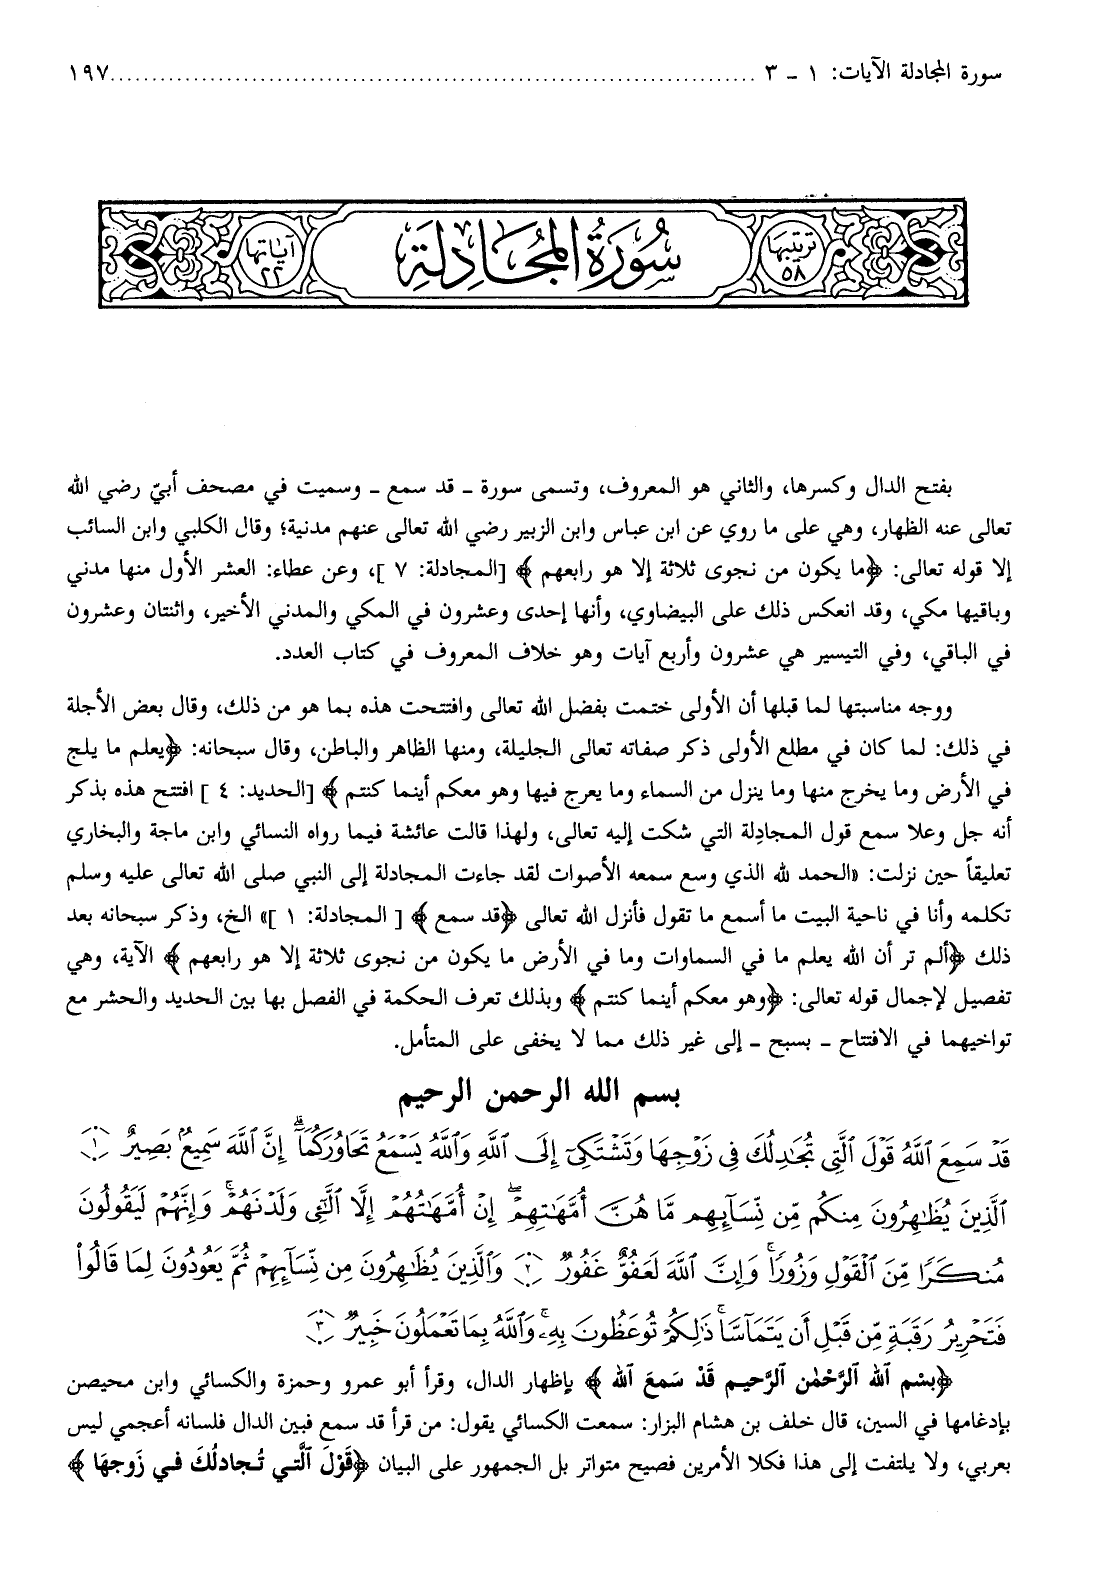 سورة المجادلة الآيات: ١ ـ ٣ ........................................................................... ١٩٧
ترتيبها ٥٨ سُورَةُ المُجَادِلَةِ آياتها ٢٢
بفتح الدال وكسرها، والثاني هو المعروف، وتسمى سورة ـ قد سمع ـ وسميت في مصحف أبيّ رضي الله
تعالى عنه الظهار، وهي على ما روي عن ابن عباس وابن الزبير رضي الله تعالى عنهم مدنية؛ وقال الكلبي وابن السائب
إلا قوله تعالى: ﴿ما يكون من نجوى ثلاثة إلا هو رابعهم ﴾ [المجادلة: ٧ ]، وعن عطاء: العشر الأول منها مدني
وباقيها مكي، وقد انعكس ذلك على البيضاوي، وأنها إحدى وعشرون في المكي والمدني الأخير، واثنتان وعشرون
في الباقي، وفي التيسير هي عشرون وأربع آيات وهو خلاف المعروف في كتاب العدد.
ووجه مناسبتها لما قبلها أن الأولى ختمت بفضل الله تعالى وافتتحت هذه بما هو من ذلك، وقال بعض الأجلة
في ذلك: لما كان في مطلع الأولى ذكر صفاته تعالى الجليلة، ومنها الظاهر والباطن، وقال سبحانه: ﴿يعلم ما يلج
في الأرض وما يخرج منها وما ينزل من السماء وما يعرج فيها وهو معكم أينما كنتم ﴾ [الحديد: ٤ ] افتتح هذه بذكر
أنه جل وعلا سمع قول المجادِلة التي شكت إليه تعالى، ولهذا قالت عائشة فيما رواه النسائي وابن ماجة والبخاري
تعليقاً حين نزلت: «الحمد لله الذي وسع سمعه الأصوات لقد جاءت المجادلة إلى النبي صلى الله تعالى عليه وسلم
تكلمه وأنا في ناحية البيت ما أسمع ما تقول فأنزل الله تعالى ﴿قد سمع ﴾ [ المجادلة: ١ ]» الخ، وذكر سبحانه بعد
ذلك ﴿ألم تر أن الله يعلم ما في السماوات وما في الأرض ما يكون من نجوى ثلاثة إلا هو رابعهم ﴾ الآية، وهي
تفصيل لإجمال قوله تعالى: ﴿وهو معكم أينما كنتم ﴾ وبذلك تعرف الحكمة في الفصل بها بين الحديد والحشر مع
تواخيهما في الافتتاح ـ بسبح ـ إلى غير ذلك مما لا يخفى على المتأمل.
بسم الله الرحمن الرحيم
قَدْ سَمِعَ ٱللَّهُ قَوْلَ ٱلَّتِي تُجَٰدِلُكَ فِي زَوْجِهَا وَتَشْتَكِيٓ إِلَى ٱللَّهِ وَٱللَّهُ يَسْمَعُ تَحَاوُرَكُمَآۚ إِنَّ ٱللَّهَ سَمِيعُۢ بَصِيرٌ ١
ٱلَّذِينَ يُظَٰهِرُونَ مِنكُم مِّن نِّسَآئِهِم مَّا هُنَّ أُمَّهَٰتِهِمْۖ إِنْ أُمَّهَٰتُهُمْ إِلَّا ٱلَّٰٓـِٔي وَلَدْنَهُمْۚ وَإِنَّهُمْ لَيَقُولُونَ
مُنكَرًا مِّنَ ٱلْقَوْلِ وَزُورًاۚ وَإِنَّ ٱللَّهَ لَعَفُوٌّ غَفُورٌ ٢ وَٱلَّذِينَ يُظَٰهِرُونَ مِن نِّسَآئِهِمْ ثُمَّ يَعُودُونَ لِمَا قَالُوا۟
فَتَحْرِيرُ رَقَبَةٍ مِّن قَبْلِ أَن يَتَمَآسَّاۚ ذَٰلِكُمْ تُوعَظُونَ بِهِۦۚ وَٱللَّهُ بِمَا تَعْمَلُونَ خَبِيرٌ ٣
﴿بِسْم ٱلله ٱلرَّحْمٰن ٱلرَّحيم قَدْ سَمعَ ٱلله ﴾ بإظهار الدال، وقرأ أبو عمرو وحمزة والكسائي وابن محيصن
بإدغامها في السين، قال خلف بن هشام البزار: سمعت الكسائي يقول: من قرأ قد سمع فبين الدال فلسانه أعجمي ليس
بعربي، ولا يلتفت إلى هذا فكلا الأمرين فصيح متواتر بل الجمهور على البيان ﴿قَوْلَ ٱلَّتي تُجادلُكَ في زَوجهَا ﴾